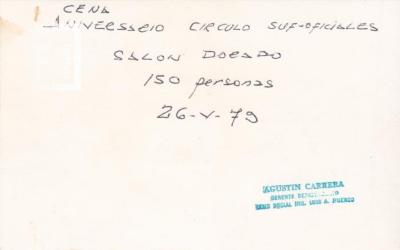 CENA
ANIVERSARIO CIRCULO SUF-OFICIALES
SALON DORADO
150 personas
26-V-79
AGUSTIN CARRERA
GERENTE
SEDE SOCIAL ING. LUIS A. HUERGO